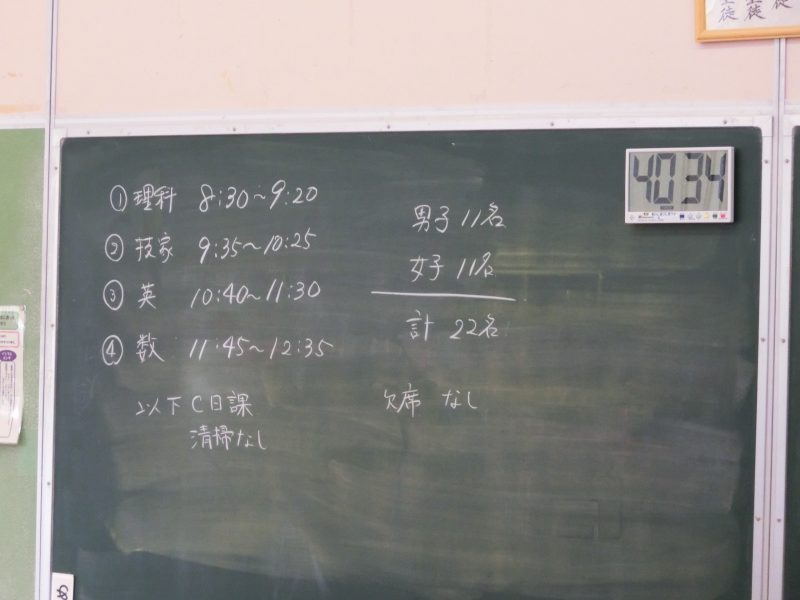 ①理科 8:30〜9:20
②技家 9:35〜10:25
③英 10:40〜11:30
④数 11:45〜12:35
以下C日課
清掃なし
男子 11名
女子 11名
計 22名
欠席 なし
40 34
生徒
生徒
徒